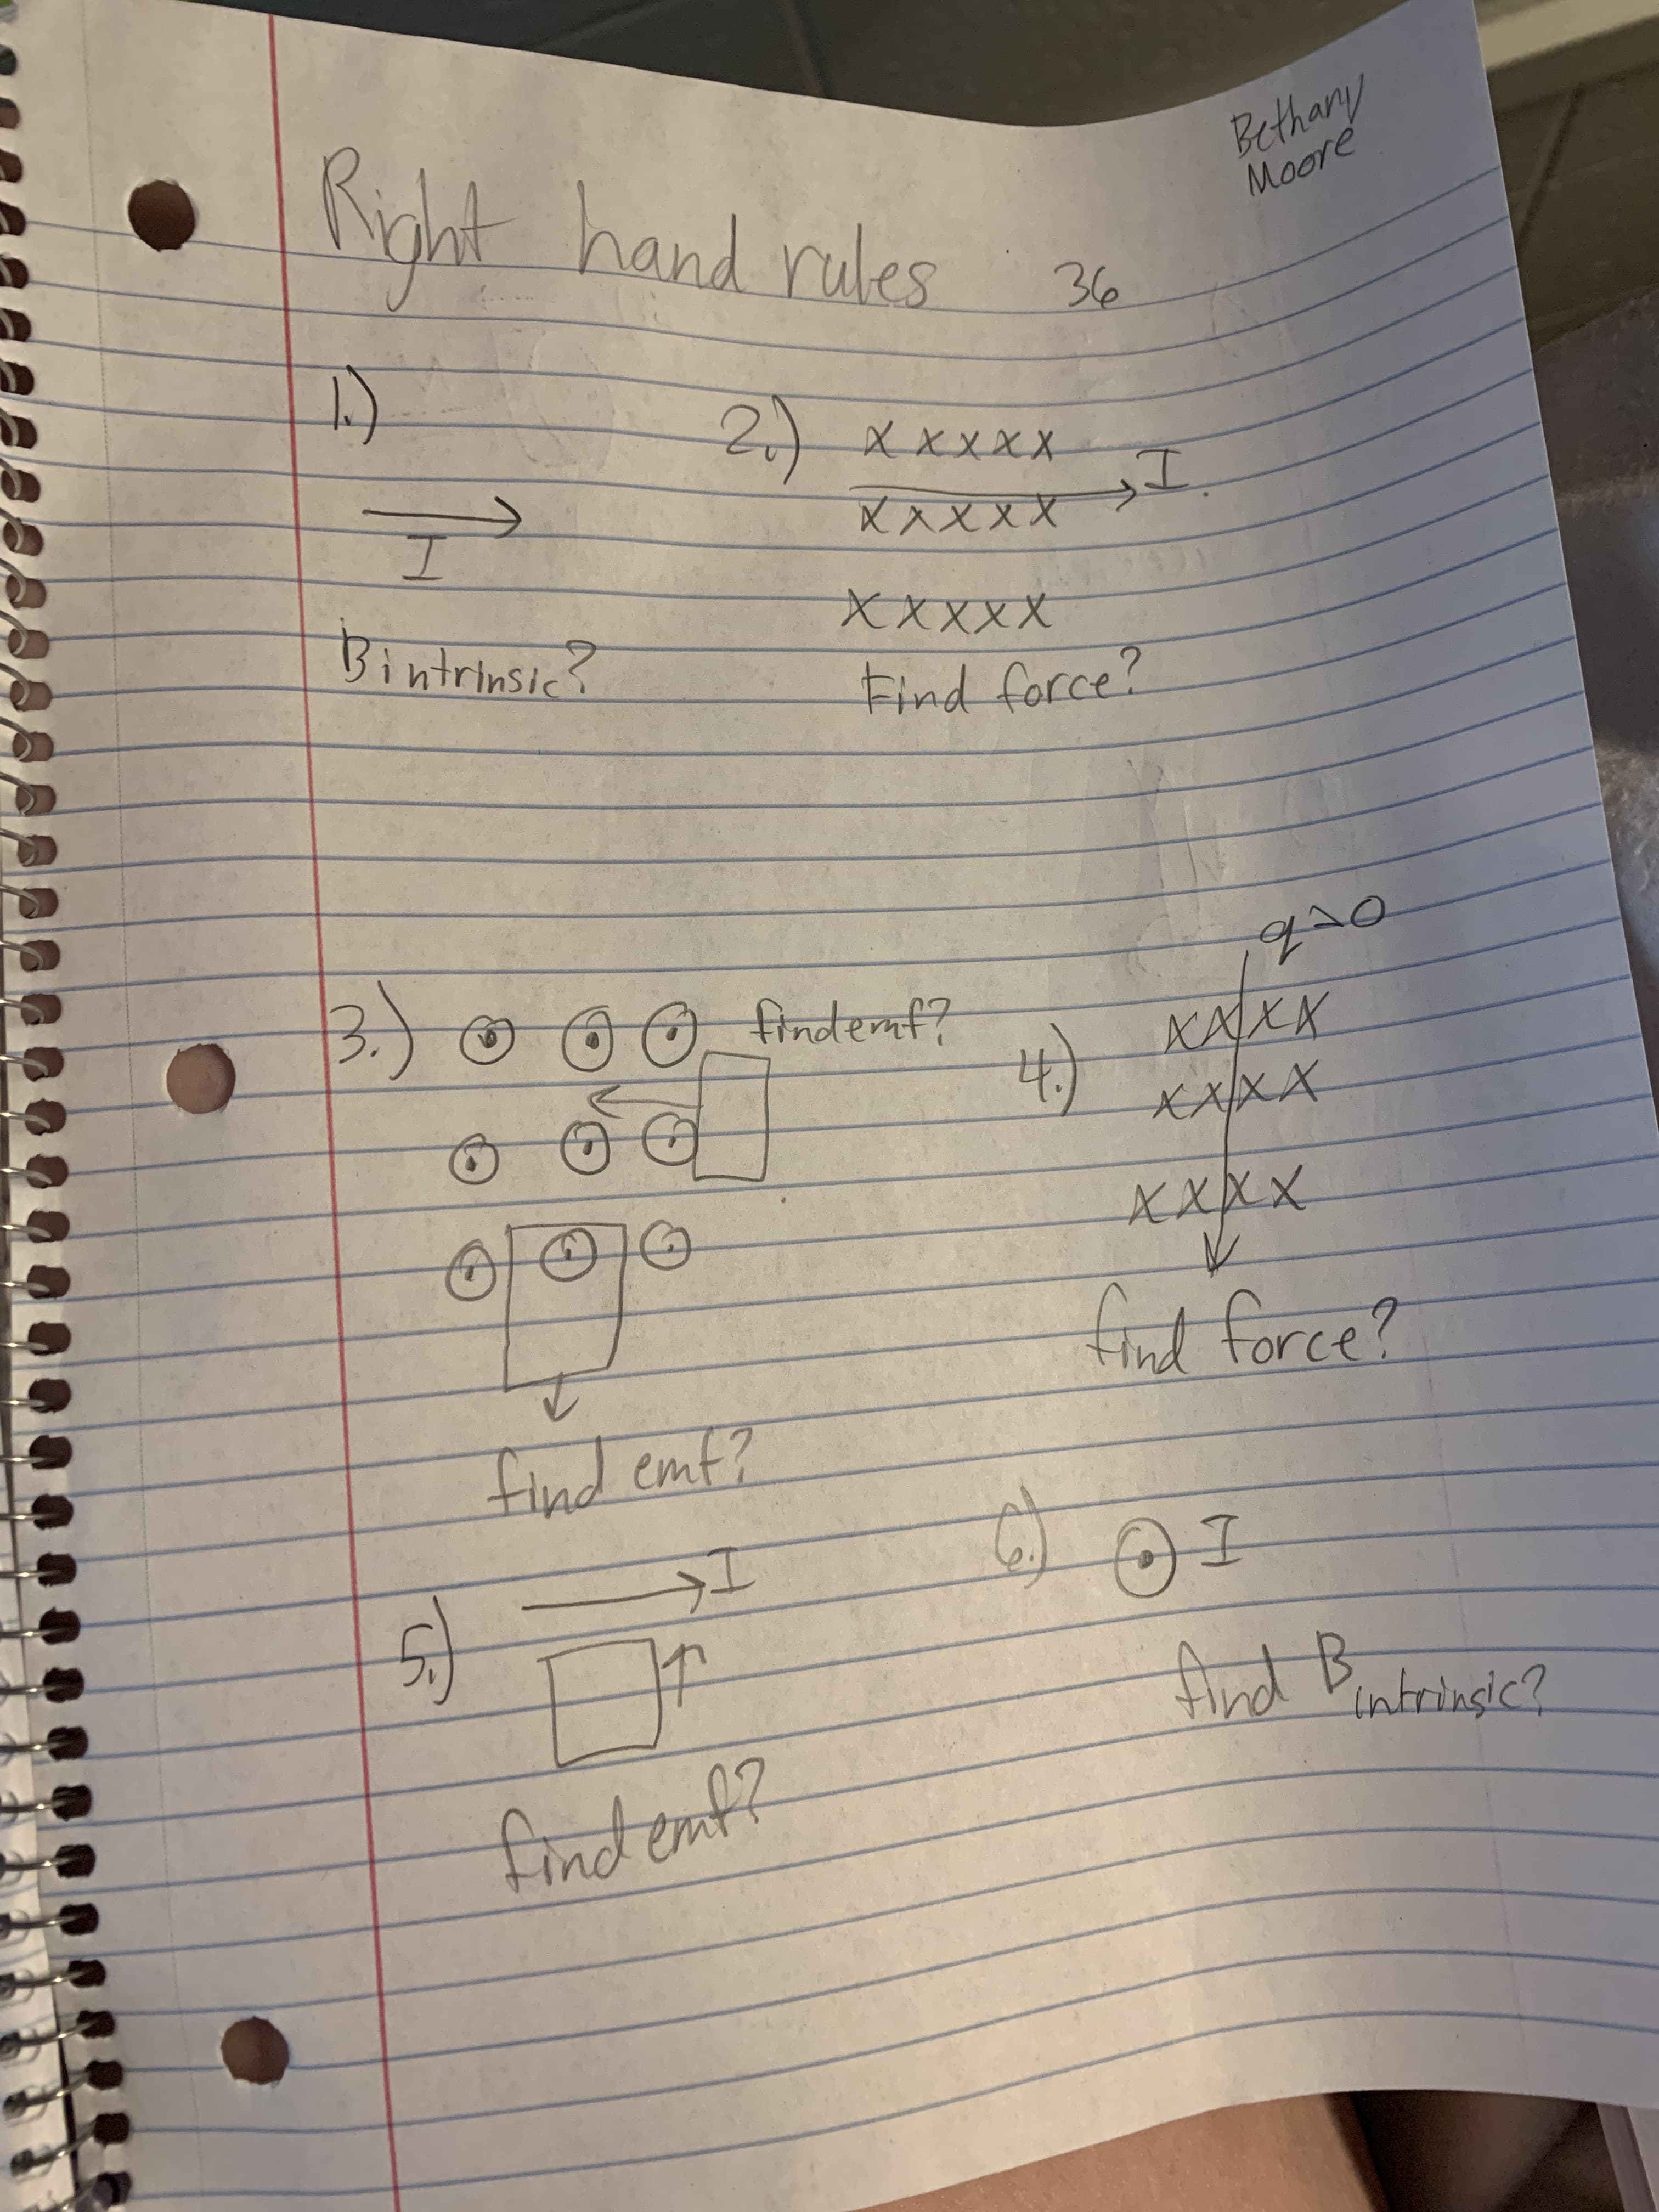 Bethany
Moore
Right hand rules 36
1.)
I
B intrinsic?
2.) x x x x x
I
x x x x x
x x x x x
Find force?
3.) find emf?
find emf?
4.) q>0
x x x x
x x x x
x x x x
find force?
5.) I
find emf?
6.) I
find B intrinsic?